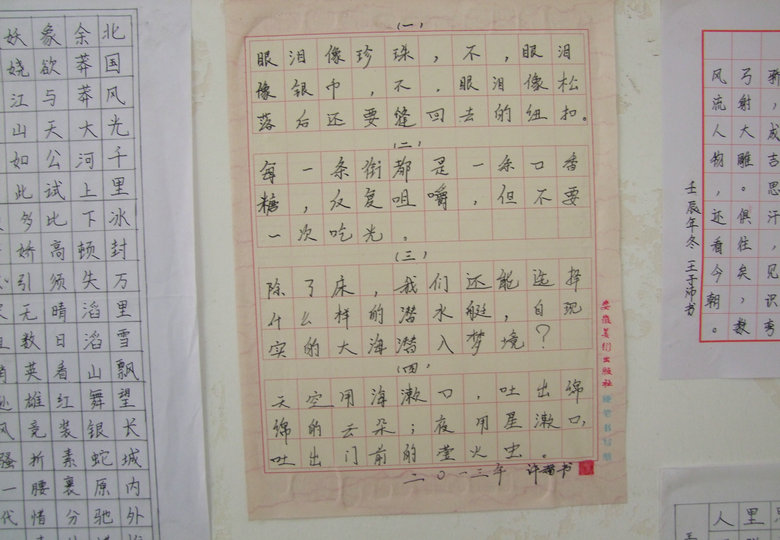 北国风光千里冰封万里雪飘望长城内外
余莽莽大河上下顿失滔滔山舞银蛇原驰
象欲与天公试比高须晴日看红装素裹分
妖娆江山如此多娇引无数英雄竞折腰惜
(一)
眼泪像珍珠，不，眼泪
像银币，不，眼泪像松
落后还要缝回去的纽扣。
(二)
每一条街都是一条口香
糖，反复咀嚼，但不要
一次吃光。
(三)
除了床，我们还能选择
什么样的潜水艇，自现
实的大海潜入梦境？
(四)
天空用海漱口，吐出绵
绵的云朵；夜用星漱口，
吐出门前的萤火虫。
二〇一三年 许 书
安徽美术出版社
成吉思汗，
弓射大雕。俱往矣，数
风流人物，还看今朝。
壬辰年冬 王
人里